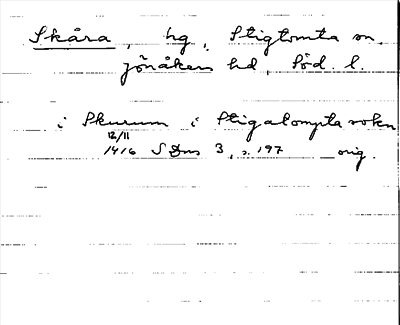 Skåra, hg, Stigtomta sn,
Jönåkers hd, Söd. l.
i Skurum i Stigalompta sokn
12/11
1416 SDns 3, s. 197 orig.